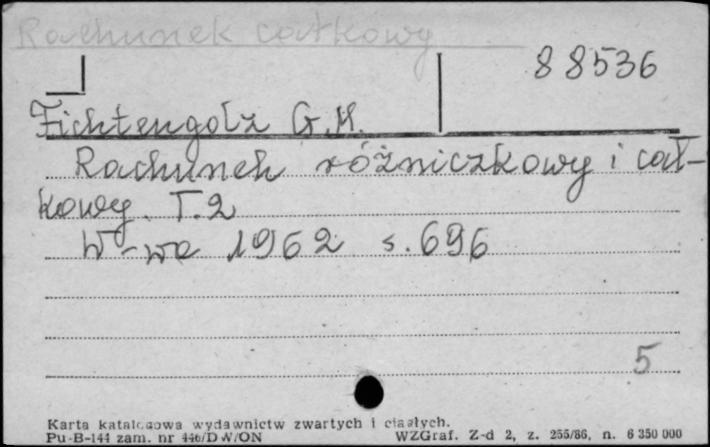 Rachunek całkowy
88536
Fichtengolz G.M.
Rachunek różniczkowy i cał-
kowy. T.2
W-wa 1962 s. 696
5
Karta katalogowa wydawnictw zwartych i ciągłych.
Pu-B-144 zam. nr 446/DW/ON WZGraf. Z-d 2, z. 255/86, n. 6 350 000